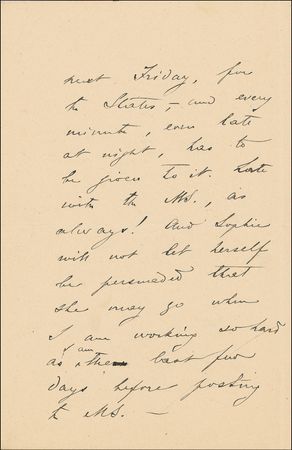 next Friday, for
the States, – and every
minute, even late
at night, has to
be given to it. Late
with the MS., as
always! And Sophie
will not let herself
be persuaded that
she may go when
I am working so hard
as I am these last few
days before posting
the MS. —